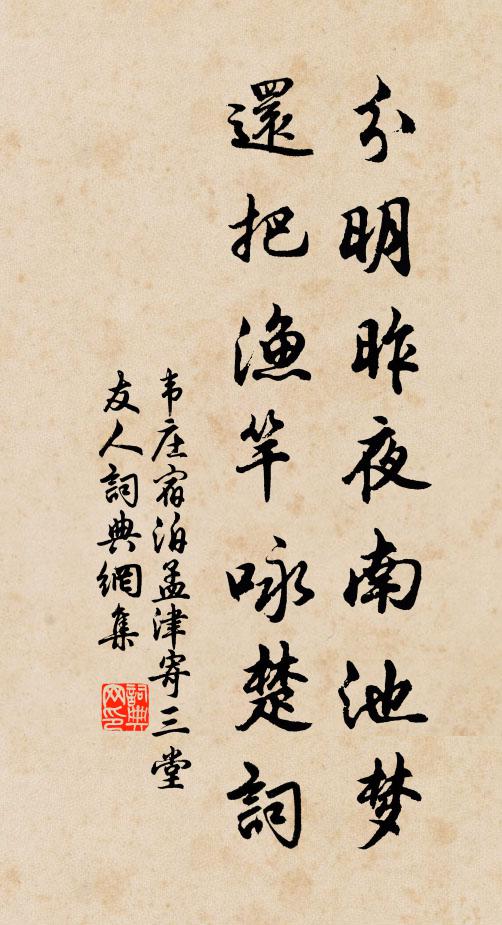 分明昨夜南池梦
還把漁竿咏楚詞
韦庄宿泊孟津寄三堂
友人詞典網集
詞典网印